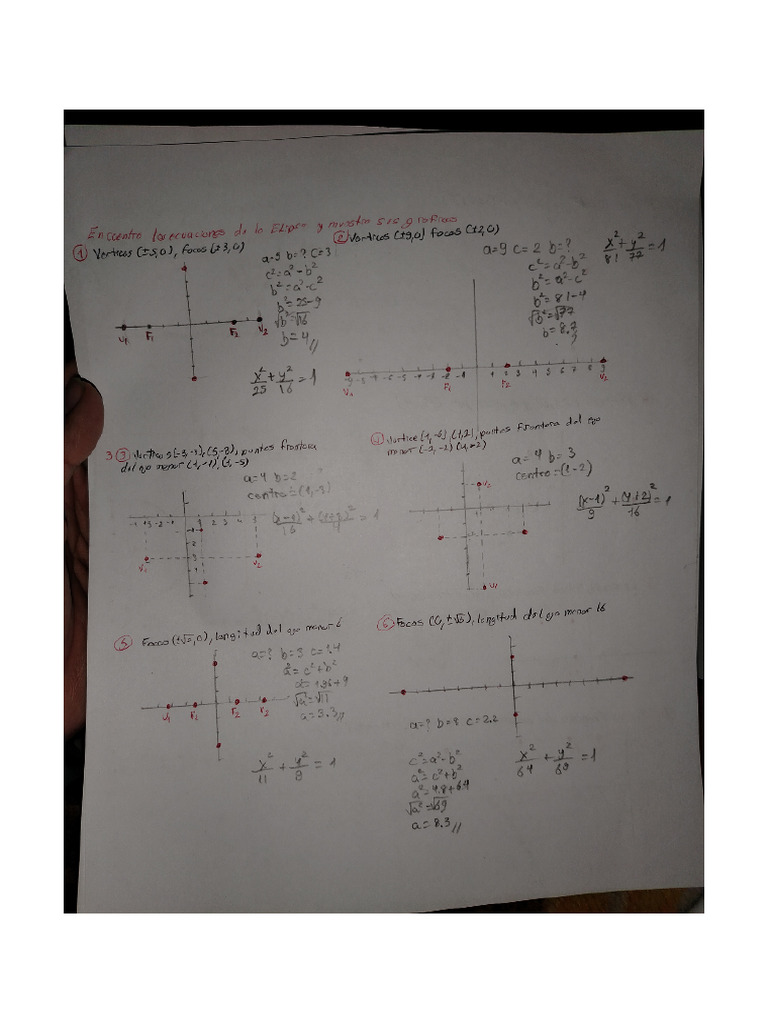 Encuentra las ecuaciones de la Elipse y muestra sus graficas
① Vertices (±5,0), focos (±3,0)
a=5 b=? c=3
c²=a²-b²
b²=a²-c²
b²=25-9
√b²=√16
b=4//
V₁ F₁ F₂ V₂
x²/25 + y²/16 = 1
② Vertices (±9,0) focos (±2,0)
a=9 c=2 b=?
c²=a²-b²
b²=a²-c²
b²=81-4
√b²=√77
b=8.7
x²/81 + y²/77 = 1
V₁ F₁ F₂ V₂
3 ③ Vertices (-3,-3), (5,-3), puntos frontera
del eje menor (1,-1), (1,-5)
a=4 b=2
centro = (1,-3)
(x-1)²/16 + (y+3)²/4 = 1
V₁ V₂
4 Vertice (1,-6), (1,2), puntos frontera del eje
menor (-2,-2) (4,-2)
a=4 b=3
centro=(1-2)
(x-1)²/9 + (y+2)²/16 = 1
V₂
V₁
⑤ Focos (±√2,0), longitud del eje menor 6
a=? b=3 c=1.4
a²=c²+b²
a²=1.96+9
√a²=√11
a=3.3//
V₁ F₁ F₂ F₂
x²/11 + y²/9 = 1
⑥ Focos (0,±√5), longitud del eje menor 16
a=? b=8 c=2.2
c²=a²-b²
a²=c²+b²
a²=4.8+64
√a²=√69
a=8.3//
x²/64 + y²/69 = 1